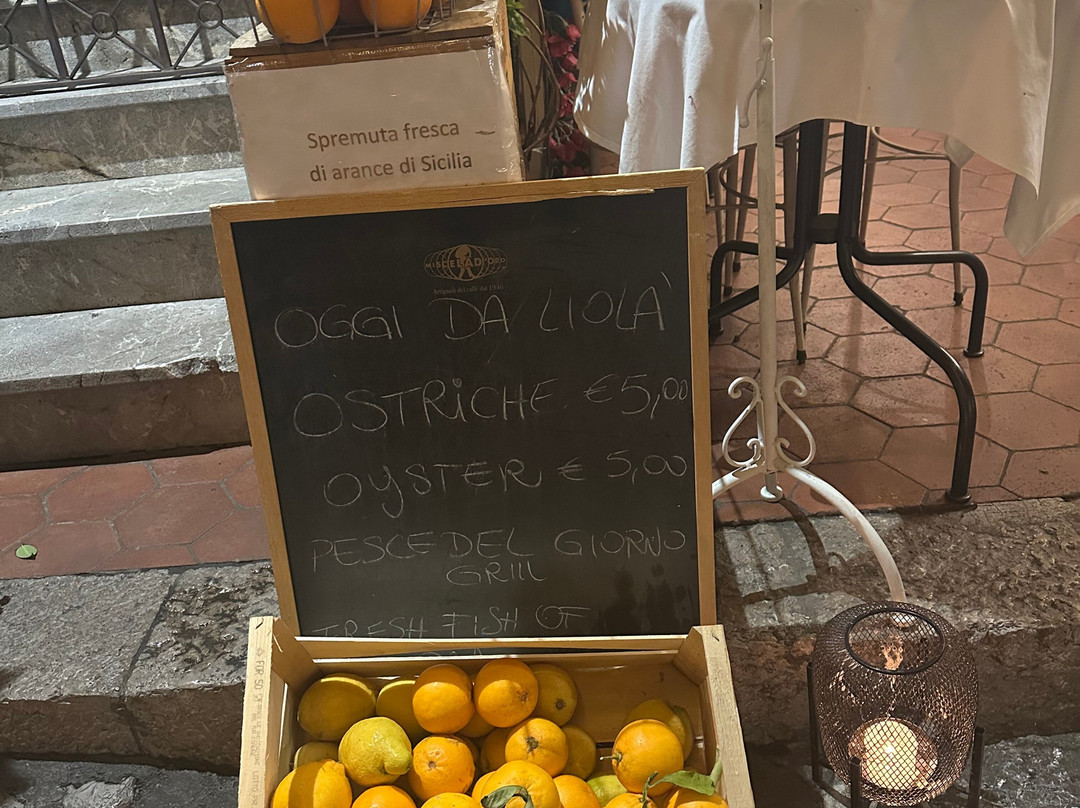 Spremuta fresca
di arance di Sicilia
MISCELA D'ORO
Artigiani del caffè dal 1946
OGGI DA LIOLA'
OSTRICHE €5,00
OYSTER € 5,00
PESCE DEL GIORNO
GRILL
FRESH FISH OF